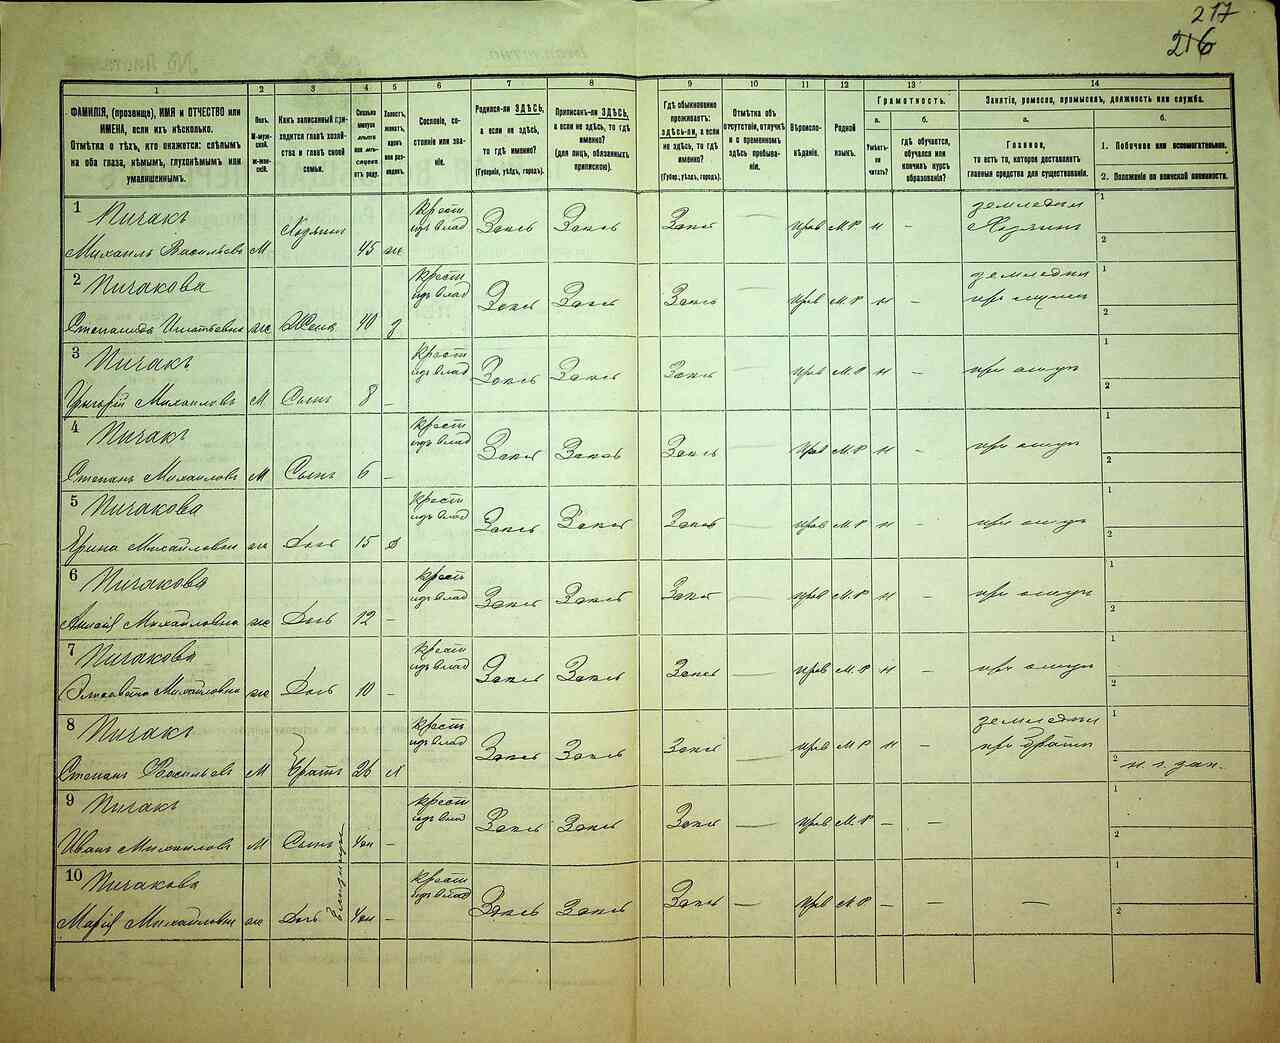 217
216
1
2
3
4
5
6
7
8
9
10
11
12
13
14
ФАМИЛІЯ, (прозвище), ИМЯ и ОТЧЕСТВО или ИМЕНА, если ихъ нѣсколько.
Отмѣтка о тѣхъ, кто окажется: слѣпымъ на оба глаза, нѣмымъ, глухонѣмымъ или умалишеннымъ.
Полъ.
М-мужской.
ж-женской.
Какъ записанный приходится главѣ хозяйства и главѣ своей семьи.
Сколько минуло лѣтъ или мѣсяцевъ отъ роду.
Холостъ, женатъ, вдовъ или разведенъ.
Сословіе, состояніе или званіе.
Родился-ли ЗДѢСЬ, а если не здѣсь, то гдѣ именно?
(Губернія, уѣздъ, городъ).
Приписанъ-ли ЗДѢСЬ, а если не здѣсь, то гдѣ именно?
(для лицъ, обязанныхъ припискою).
Гдѣ обыкновенно проживаетъ: здѣсь-ли, а если не здѣсь, то гдѣ именно?
(Губер., уѣздъ, городъ).
Отмѣтка объ отсутствіи, отлучкѣ и о временномъ здѣсь пребываніи.
Вѣроисповѣданіе.
Родной языкъ.
Грамотность.
а.
Умѣетъ-ли читать?
б.
гдѣ обучается, обучался или кончилъ курсъ образованія?
Занятіе, ремесло, промыселъ, должность или служба.
а.
Главное,
то есть то, которое доставляетъ главныя средства для существованія.
б.
1. Побочное или вспомогательное.
2. Положеніе по воинской повинности.
1 Пичакъ Михаилъ Васильевъ М Хозяинъ 45 ж крест изъ влад Здесь Здесь Здесь — прав М Р н — земледел Хозяинъ 1 2
2 Пичакова Степанида Игнатьевна ж Жена 40 з крест изъ влад Здесь Здесь Здесь — прав М Р н — земледел при муже 1 2
3 Пичакъ Григорій Михаиловъ М Сынъ 8 — крест изъ влад Здесь Здесь Здесь — прав М Р н — при отце 1 2
4 Пичакъ Степанъ Михаиловъ М Сынъ 6 — крест изъ влад Здесь Здесь Здесь — прав М Р н — при отце 1 2
5 Пичакова Ирина Михайловна ж Дочь 15 крест изъ влад Здесь Здесь Здесь — прав М Р н — при отце 1 2
6 Пичакова Михайловна ж Дочь 12 — крест изъ влад Здесь Здесь Здесь — прав М Р н — при отце 1 2
7 Пичакова Елисавета Михайловна ж Дочь 10 — крест изъ влад Здесь Здесь Здесь — прав М Р н — при отце 1 2
8 Пичакъ Степанъ Васильевъ М Братъ 26 крест изъ влад Здесь Здесь Здесь — прав М Р н — земледел при братѣ 1 2 н. г. зап.
9 Пичакъ Иванъ Михаиловъ М Сынъ 4м — крест изъ влад Здесь Здесь Здесь — прав М Р — — 1 2
близнецы
10 Пичакова Марія Михайловна ж Дочь 4м — крест изъ влад Здесь Здесь Здесь — прав М Р — — — 1 2